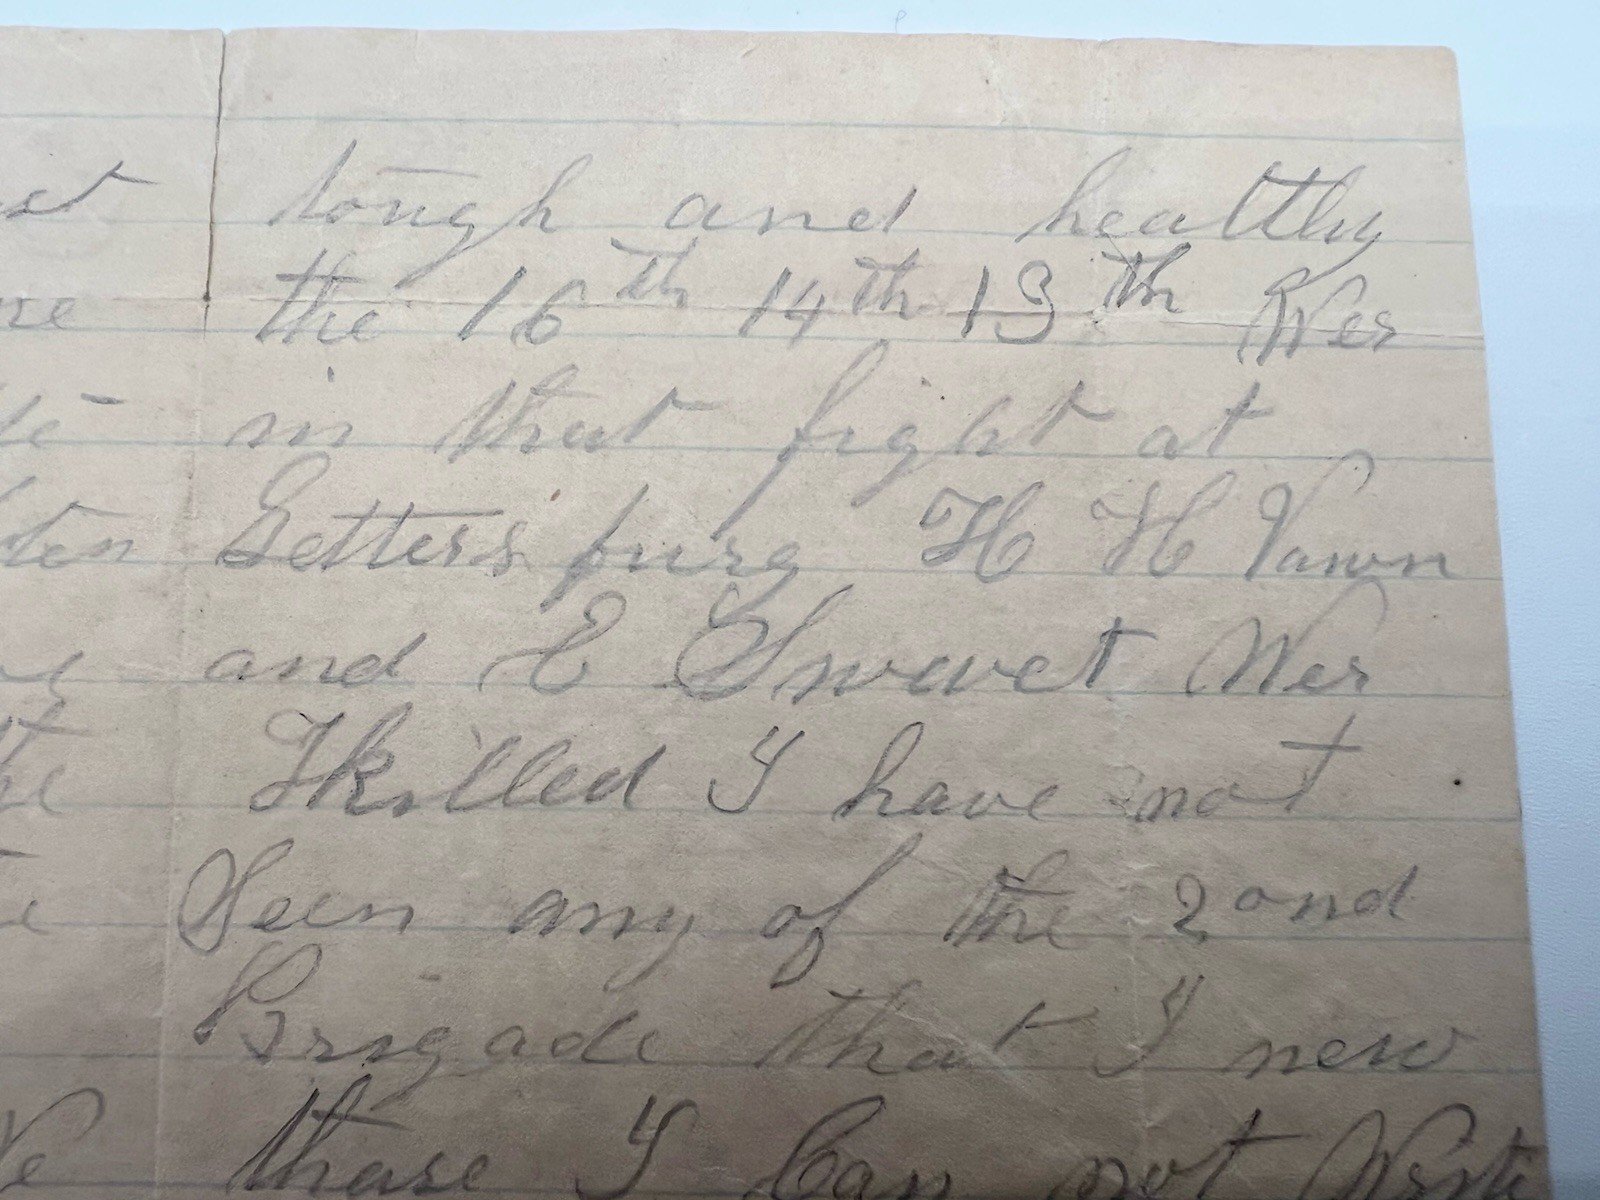 tough and healthy
the 16th 14th 13th Wer
in that fight at
Gettersfurg H H Vawn
and E Swavet Wer
Killed I have not
Seen any of the 2ond
Brigade that I new
thase I Can not Write